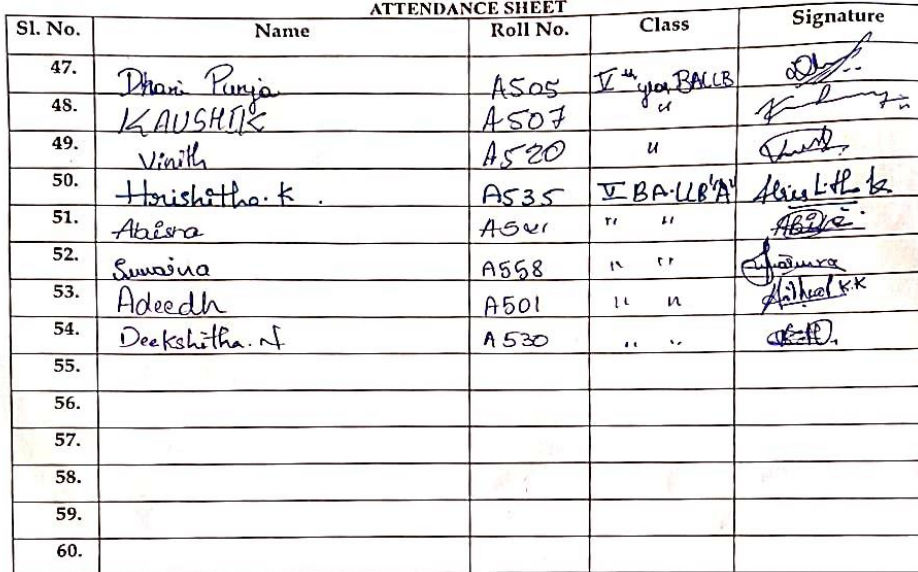 ATTENDANCE SHEET
Sl. No. Name Roll No. Class Signature
47. Dhani Punja A505 V th year BALLB
48. KAUSHIK A507 "
49. Vinith A520 "
50. Hrishitha. K . A535 V BA.LLB 'A' Hrishitha K
51. A541 " "
52. Sunaina A558 " "
53. Adeedh A501 " " K.K
54. Deekshitha. N A530 " "
55.
56.
57.
58.
59.
60.